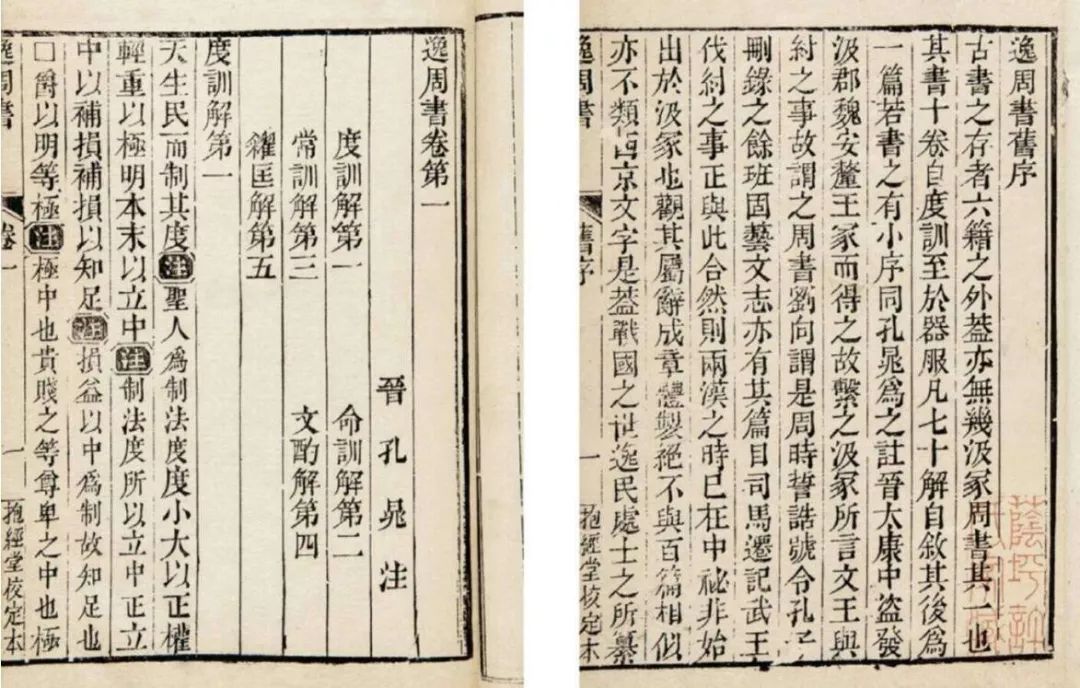 逸周書舊序
古書之存者六籍之外葢亦無幾汲冢周書其一也
其書十卷自度訓至於器服凡七十解自敘其後爲
一篇若書之有小序同孔晁爲之註晉大康中盜發
汲郡魏安釐王冢而得之故繫之汲冢所言文王與
紂之事故謂之周書劉向謂是周時誓誥號令孔子
刪錄之餘班固藝文志亦有其篇目司馬遷記武王
伐紂之事正與此合然則兩漢之時已在中祕非始
出於汲冢也觀其屬辭成章體製絕不與百篇相似
亦不類西京文字是葢戰國之世逸民處士之所纂
逸周書 舊序 一 抱經堂校定本
逸周書卷第一
晉孔晁注
度訓解第一 命訓解第二
常訓解第三 文酌解第四
糴匡解第五
度訓解第一
天生民而制其度注聖人爲制法度度小大以正權
輕重以極明本末以立中注制法度所以立中正立
中以補損補損以知足注損益以中爲制故知足也
□爵以明等極注極中也貴賤之等尊卑之中也極
逸周書 卷一 一 抱經堂校定本